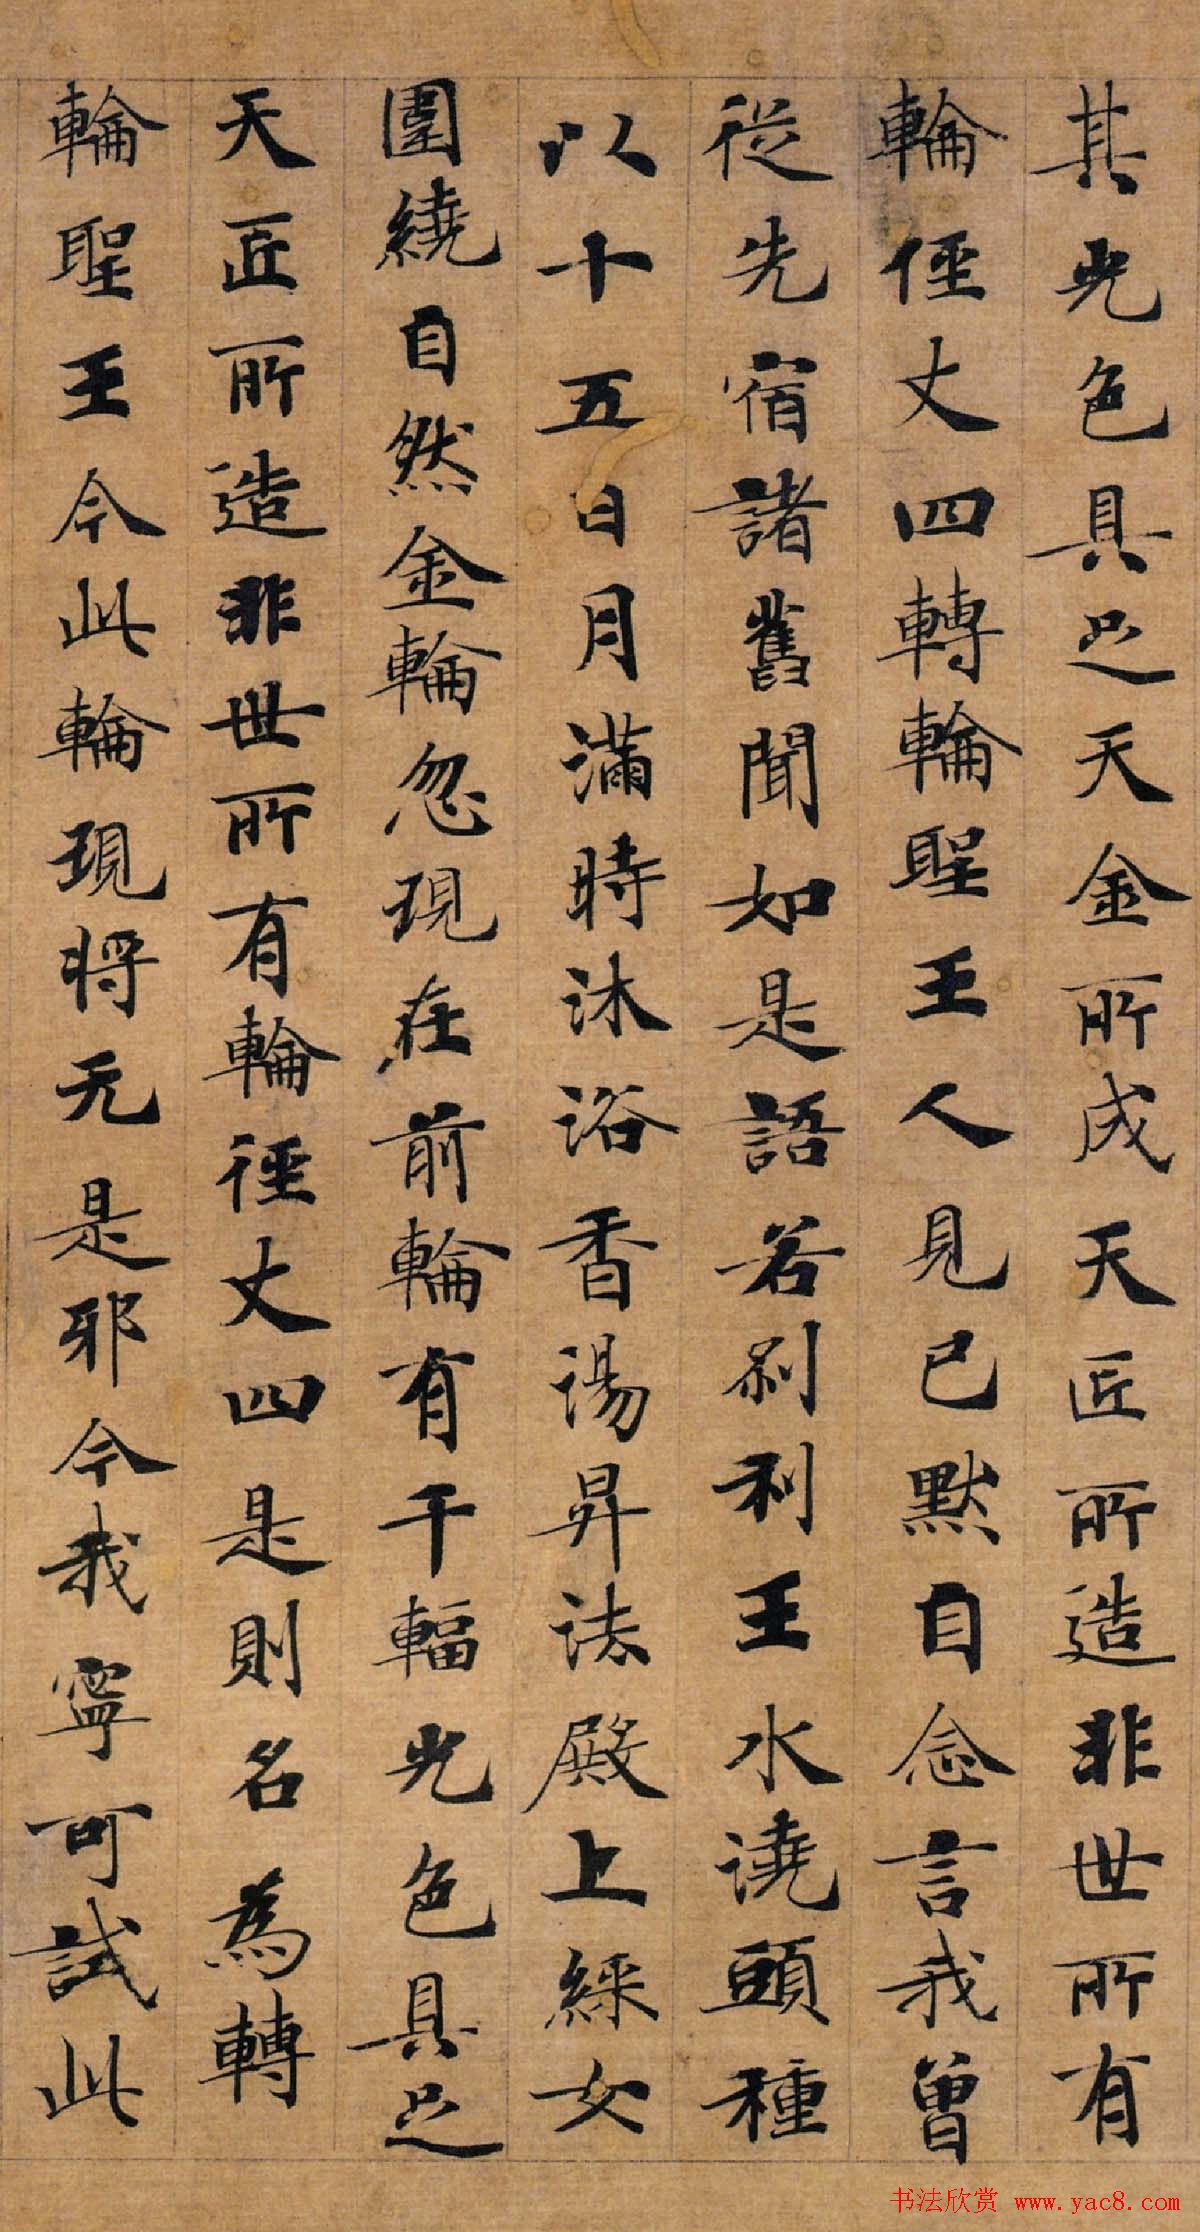 其光色具足天金所成天匠所造非世所有
輪俓丈四轉輪聖王人見已默自念言我曾
從先宿諸舊聞如是語若剎利王水澆頭種
以十五日月滿時沐浴香湯昇法殿上綵女
圍繞自然金輪忽現在前輪有千輻光色具足
天匠所造非世所有輪徑丈四是則名為轉
輪聖王今此輪現將无是邪今我寧可試此
书法欣赏 www.yac8.com